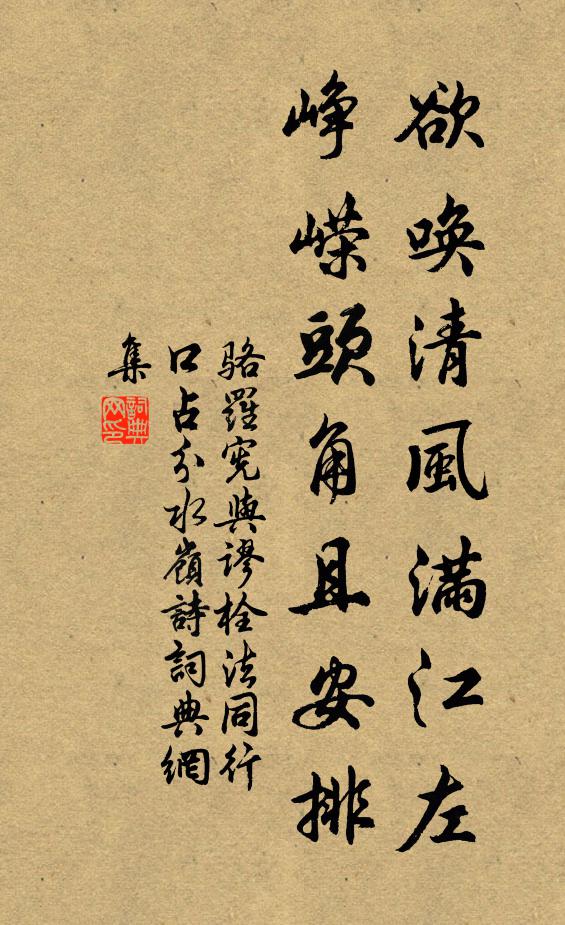 欲唤清風滿江左
峥嵘頭角且安排
骆羅宪與謬栓法同行
口占分水嶺詩詞典網
集
詞典網印